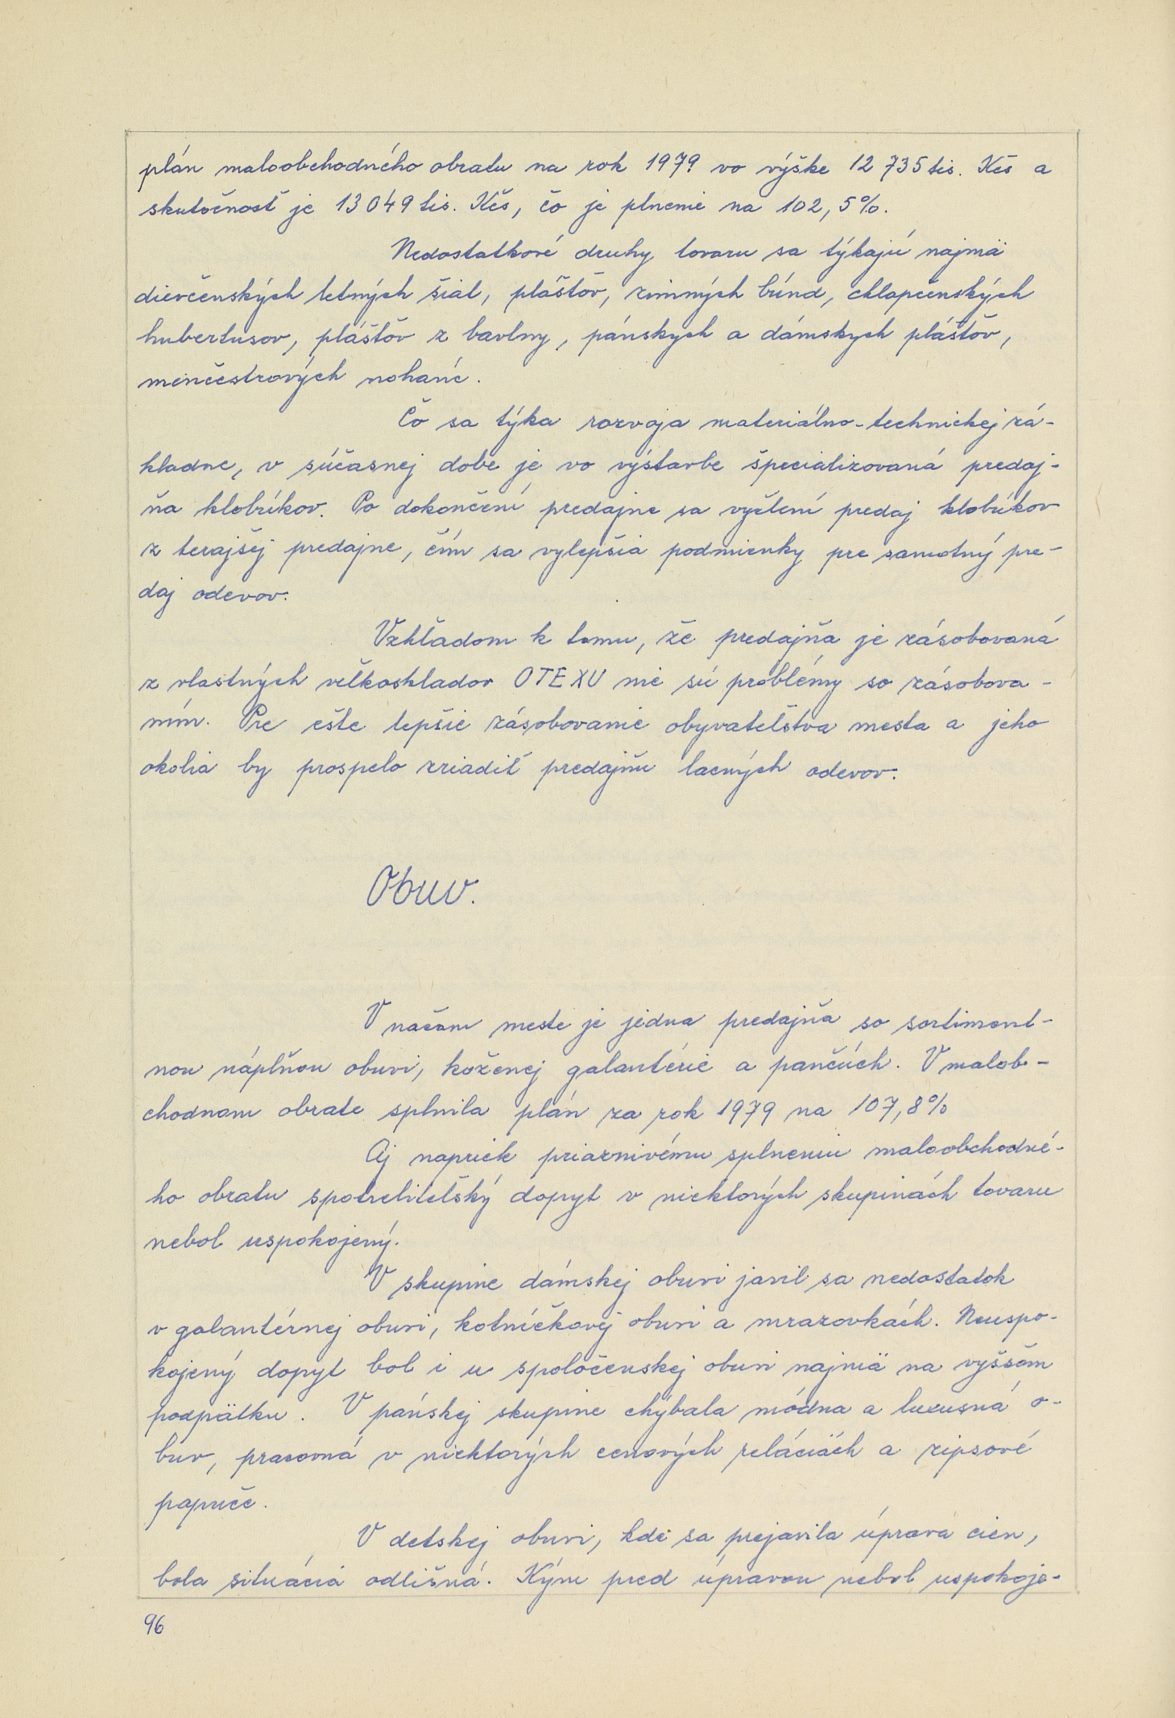 plán maloobchodného obratu na rok 1979 vo výške 12 735 tis. Kčs a
skutočnosť je 13 049 tis. Kčs, čo je plnenie na 102,5%.
Nedostatkové druhy tovaru sa týkajú najmä
dievčenských letných šiat, plášťov, zimných búnd, chlapčenských
hubertusov, plášťov z bavlny, pánskych a dámskych plášťov,
menčestrových nohavíc.
Čo sa týka rozvoja materiálno-technickej zá-
kladne, v súčasnej dobe je vo výstavbe špecializovaná predaj-
ňa klobúkov. Po dokončení predajne sa vyčlení predaj klobúkov
z terajšej predajne, čím sa vylepšia podmienky pre samotný pre-
daj odevov.
Vzhľadom k tomu, že predajňa je zásobovaná
z vlastných veľkoskladov OTEXU nie sú problémy so zásobova-
ním. Pre ešte lepšie zásobovanie obyvateľstva mesta a jeho
okolia by prospelo zriadiť predajňu lacných odevov.
Obuv.
V našom meste je jedna predajňa so sortiment-
nou náplňou obuvi, koženej galantérie a pančúch. V malob-
chodnom obrate splnila plán za rok 1979 na 107,8%
Aj napriek priaznivému splneniu maloobchodné-
ho obratu spotrebiteľský dopyt v niektorých skupinách tovaru
nebol uspokojený.
V skupine dámskej obuvi javil sa nedostatok
v galantérnej obuvi, kotníčkovej obuvi a mrazovkách. Neuspo-
kojený dopyt bol i u spoločenskej obuvi najmä na vyššom
podpätku. V pánskej skupine chýbala módna a luxusná o-
buv, pracovná v niektorých cenových reláciách a ripsové
papuče.
V detskej obuvi, kde sa prejavila úprava cien,
bola situácia odlišná. Kým pred úpravou nebol uspokoje-
96